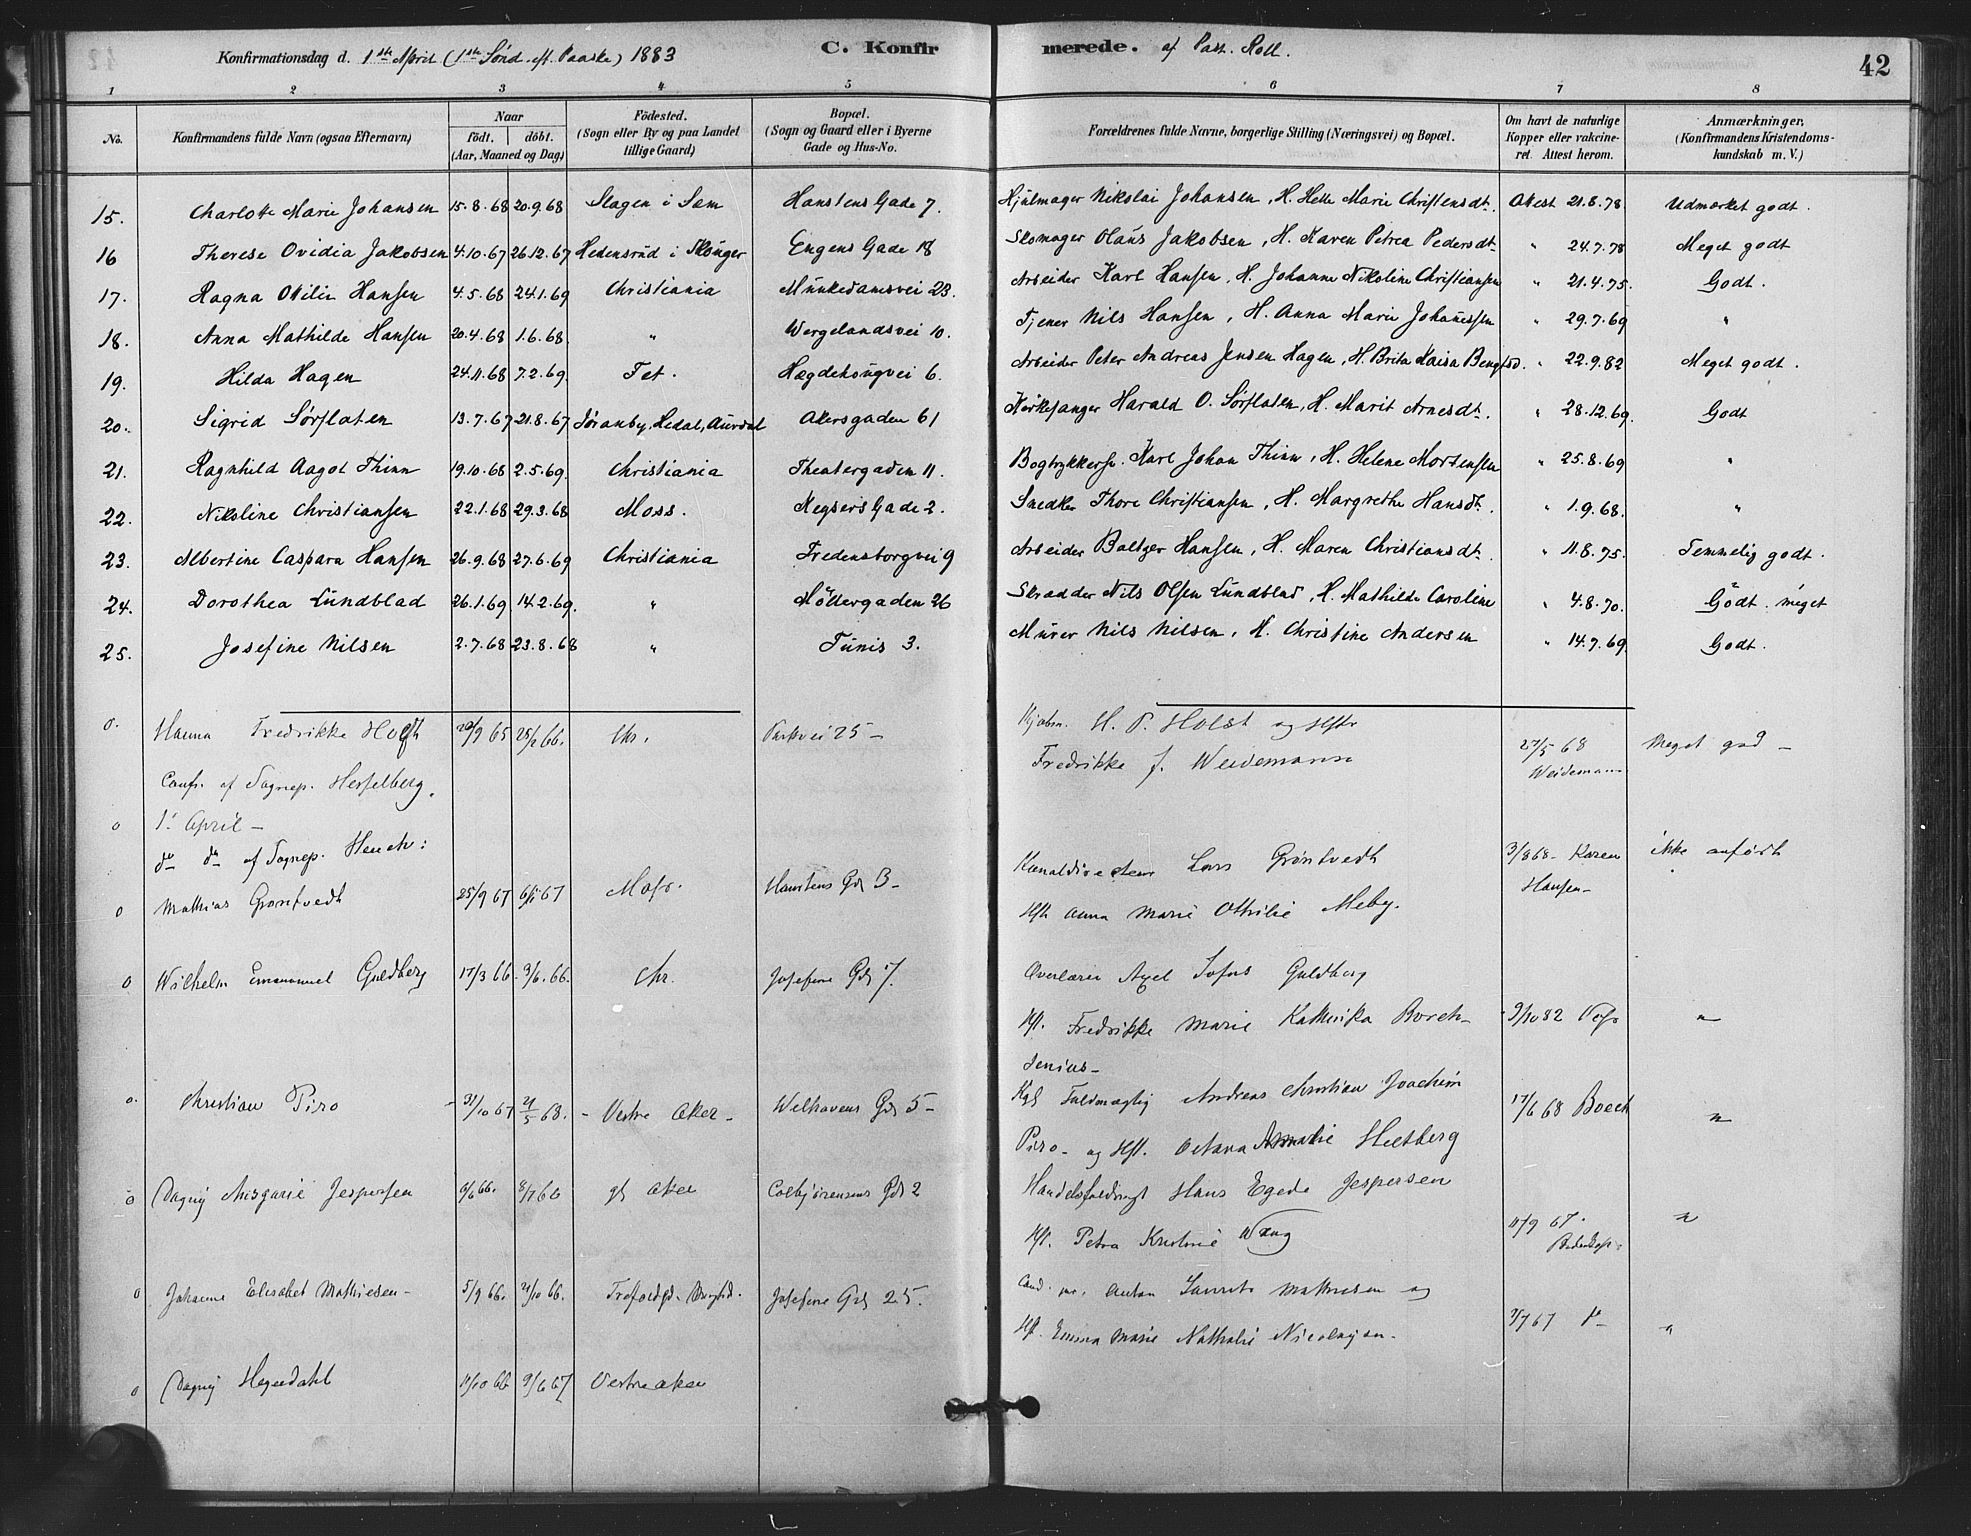 Konfirmationsdag d. 1ste April (1ste Sønd. eft. Paaske) 1883 C. Konfirmerede. af Past. Roll. 42
1 2 3 4 5 6 7 8
No. Konfirmandens fulde Navn (ogsaa Efternavn) Naar födt. döbt. (Aar, Maaned og Dag) Födested. (Sogn eller By og paa Landet tillige Gaard) Bopæl. (Sogn og Gaard eller i Byerne Gade og Hus-No. Forældrenes fulde Navne, borgerlige Stilling (Næringsvei) og Bopæl. Om havt de naturlige Kopper eller vakcineret. Attest herom. Anmærkninger. (Konfirmandens Kristendomskundskab m. V.)
15. Charlotte Marie Johansen 15.8.68 20.9.68 Slagen i Sem Hanstens Gade 7. Hjulmager Nikolai Johansen, H. Helle Marie Christensdt. Attest 21.8.78. Udmærket godt.
16 Therese Ovidia Jakobsen 4.10.67 26.12.67 Hedensrud i Skouger Engens Gade 18 Skomager Olaus Jakobsen, H. Karen Petrea Pedersdt. " 24.7.78 Meget godt
17. Ragna Otilie Hansen 4.5.68 24.1.69 Christiania Munkedamsvei 23. Arbeider Karl Hansen, H. Johanne Nikoline Christiansen " 21.4.75. Godt.
18. Anna Mathilde Hansen 20.4.68 1.6.68. " Wergelandsvei 10. Tjener Nils Hansen, H. Anna Marie Johannessen " 29.7.69 "
19. Hilda Hagen 24.11.68 7.2.69. Fet. Hægdehougvei 6. Arbeider Peter Andreas Jensen Hagen, H. Brita Kaisa Bengtsd. " 22.9.82 Meget godt.
20. Sigrid Sørflaten 13.7.67 21.8.67 Jøranby, Hedal, Aurdal Akersgaden 61 Kirkesanger Harald O. Sørflaten, H. Marit Arnesdt. " 28.12.69. Godt
21. Ragnhild Aagot Thinn 19.10.68 2.5.69. Christiania Theatergaden 11. Bogtrykkersv. Karl Johan Thinn, H. Helene Mortensen " 25.8.69 "
22. Nikoline Christiansen 22.1.68 29.3.68 Moss. Keysers Gade 2. Snedker Thore Christiansen, H. Margrethe Hansdt. " 1.9.68. "
23. Albertine Caspara Hansen 26.9.68 27.6.69 Christiania Fredensborgvei 9 Arbeider Baltzer Hansen, H. Maren Christiansdt. " 11.8.75. Temmelig godt.
24. Dorothea Lundblad 26.1.69 14.2.69. " Møllergaden 26 Skrædder Nils Olsen Lundblad, H. Mathilde Caroline " 4.8.70. Godt. meget
25. Josefine Nilsen 2.7.68 23.8.68 " Tunis 3. Murer Nils Nilsen, H. Christine Andersen " 14.7.69. Godt.
o. Hanna Fredrikke Holst 29/9 65 25/2 66. Chr. Parkvei 25 - Kjøbm. H. P. Holst og Hstr
Fredrikke f. Weidemann 27/5 68 Weidemann Meget god -
Confr. af Sognep. Hesselberg.
o 1. April -
do do af Sognep. Heuch:
o Mathias Grøntvedt 25/9 67 67 Moss. Hanstens Gd 3 - Kanaldirecteur Lars Grøntvedt 3/8 68 - Karen Hansen - ikke anført
Hst. Anna Marie Ottilie Meby.
o Wilhelm Emanuel Guldberg 17/3 66. 3/6. 66. Chr. Josefine Gd 7. Overlærer Axel Sofus Guldberg
Hst. Fredrikke Marie Kathinka Borchsenius - 9/10 82 "
o. Christian Piro - 31/10 67 21/5 68. - Vestre Aker - Welhavens Gd 5 - Kgl Fuldmægtig Andreas Christian Joachim
Piro - og Hst. Octava Amalie Heltberg 17/6 68 Boeck "
o Dagny Ansgarie Jespersen 6/6 66. 8/7 66 gl Aker Colbjørnsens Gd 2 Handelsfuldmægt Hans Egede Jespersen
Hst. Petra Kristine Wang 11/9 67. "
o Johanne Elisabet Mathiesen - 5/9 66. 21/10 66. Josefine Gd 25. Cand. Anton Laurits Mathiesen og
Hst. Emma Marie Nathalie Nicolaysen - 2/7 67 "
o Dagny Heyerdahl 11/10 66 9/6 67 Vestre Aker